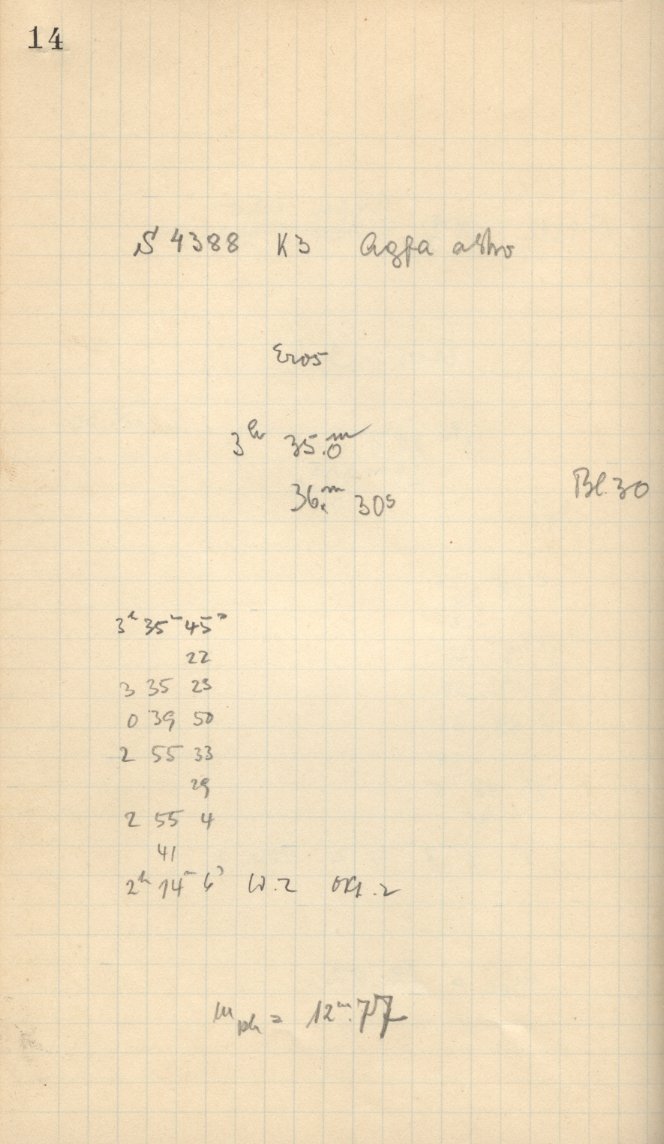 14
S 4388 K3 Agfa astro
Eros
3h 35.0m
36.m 30s
Bl. 30
3h 35m 45s
22
3 35 23
0 39 50
2 55 33
29
2 55 4
41
2h 14m 6s W.Z Okt. 2
mph = 12m.77